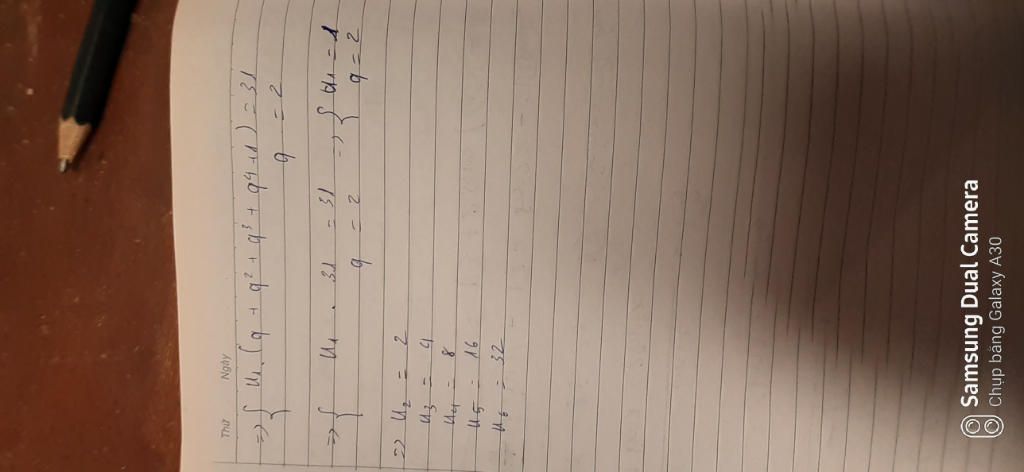 Thứ
Ngày
=> { u₁ (q + q² + q³ + q⁴ + 1) = 31
q = 2
=> { u₁ . 31 = 31 => { u₁ = 1
q = 2 q = 2
=> u₂ = 2
u₃ = 4
u₄ = 8
u₅ = 16
u₆ = 32
Samsung Dual Camera
Chụp bằng Galaxy A30